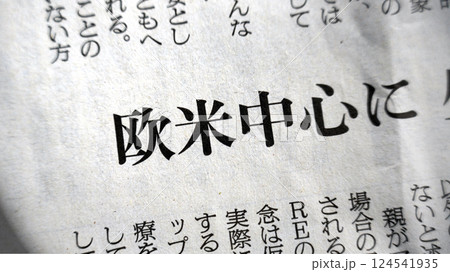 とは
して
んな
とし
ともへ
れる。
ことの
ない方
欧米中心に
ないと
親が
場合の
される
REの
念は
実際に
する
ップ
療を
して
し
pixta.jp - 124541935